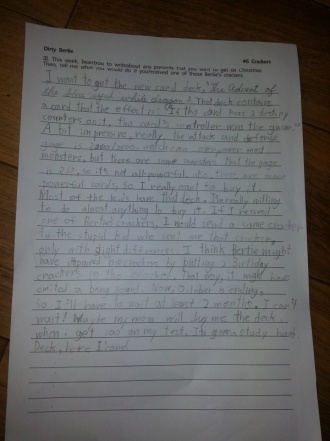 Dirty Bertie
#6 Crackers
This week, learn how to write about any presents that you want to get on Christmas.
Then, tell me what you would do if you received one of those Bertie's crackers.
I want to get the new card deck, "The Advent of
the blue eyed white dragon". That deck contains
a card that the effect is "If this card has 3 destiny
counters on it, this card's controller won the game."
A bit impressive, really. The attack and defense
gage is 2000/2000, which can over, over most
monsters, but there are some monsters that the gage
is so it's not all powerful. also, there are some
powerful cards, so I really want to buy it.
Most of the kids have that deck. I'm really willing
to do almost anything to buy it. If I received
one of Bertie's crackers, I would send a same cracker
to the stupid kid who sent me that cracker,
only with slight difference. I think Bertie might
have
crackers to the crackers. that way, it might have
emited a bang sound. Now, October is ending,
so I'll have to wait at least 2 months. I can't
wait! Maybe my mom will buy me the deck
when I got 100 on my test. I'm gonna study hard.
Deck, here I come!